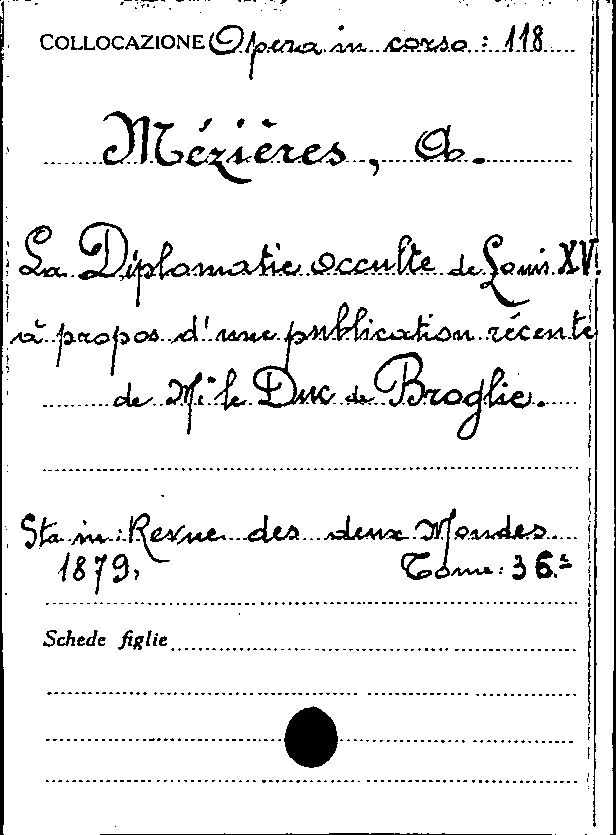 COLLOCAZIONE Opera in corso: 118
Mézières, A.
La Diplomatie occulte de Louis XV.
à propos d'une publication récente
de Mr le Duc de Broglie.
Sta in: Revue des deux Mondes
1879, Tome: 36.e
Schede figlie